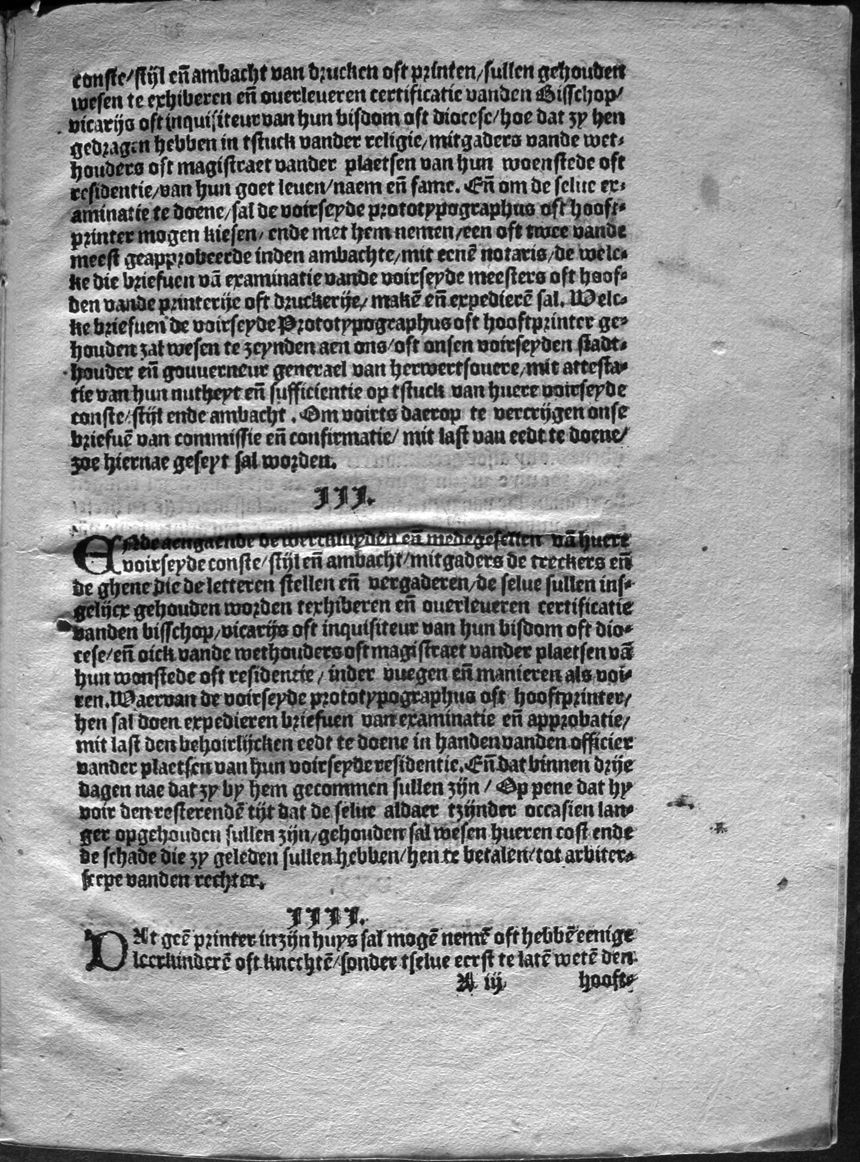 conste/stijl eñ ambacht van drucken oft printen/sullen gehouden
wesen te exhiberen eñ ouerleueren certificatie vanden Bisschop/
vicarijs oft inquisiteur van hun bisdom oft diocese/hoe dat zy hen
gedragen hebben in tstuck vander religie/mitgaders vande wet⸗
houders oft magistraet vander plaetsen van hun woenstede oft
residentie/van hun goet leuen/naem eñ fame. Eñ om de selue ex⸗
aminatie te doene/sal de voirseyde prototypographus oft hooft⸗
printer mogen kiesen/ende met hem nemen/een oft twee vande
meest geapprobeerde inden ambachte/mit eenē notaris/de welc⸗
ke die briefuen vā examinatie vande voirseyde meesters oft hoof⸗
den vande printerije oft druckerije/makē eñ expedierē sal. Welc⸗
ke briefuen de voirseyde Prototypographus oft hooftprinter ge⸗
houden zal wesen te zeynden aen ons/oft onsen voirseyden stadt⸗
houder eñ gouuerneur generael van herwertsouere/mit attesta⸗
tie van hun nutheyt eñ sufficientie op tstuck van huere voirseyde
conste/stijl ende ambacht. Om voirts daerop te vercrijgen onse
briefuē van commissie eñ confirmatie/mit last van eedt te doene/
zoe hiernae geseyt sal worden.
III.
ENde aengaende de werckluyden eñ medegesellen vā huere
voirseyde conste/stijl eñ ambacht/mitgaders de treckers eñ
de ghene die de letteren stellen eñ vergaderen/de selue sullen ins⸗
gelijcx gehouden worden texhiberen eñ ouerleueren certificatie
vanden bisschop/vicarijs oft inquisiteur van hun bisdom oft dio⸗
cese/eñ oick vande wethouders oft magistraet vander plaetsen vā
hun wonstede oft residentie/inder vuegen eñ manieren als voi⸗
ren. Waervan de voirseyde prototypographus oft hooftprinter/
hen sal doen expedieren briefuen van examinatie eñ approbatie/
mit last den behoirlijcken eedt te doene in handen vanden officier
vander plaetsen van hun voirseyde residentie. Eñ dat binnen drije
dagen nae dat zy by hem gecommen sullen zijn/Op pene dat hy
voir den resterendē tijt dat de selue aldaer tzijnder occasien lan⸗
ger opgehouden sullen zijn/gehouden sal wesen hueren cost ende
de schade die zy geleden sullen hebben/hen te betalen/tot arbiter⸗
scepe vanden rechter.
IIII.
DAt geē printer in zijn huys sal mogē nemē oft hebbē eenige
leerkinderē oft knechtē/sonder tselue eerst te latē wetē den
A iij hooft⸗